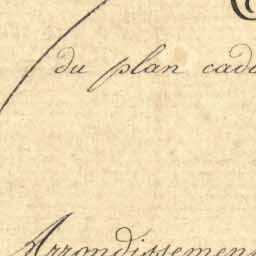 du plan cada
Arrondissement